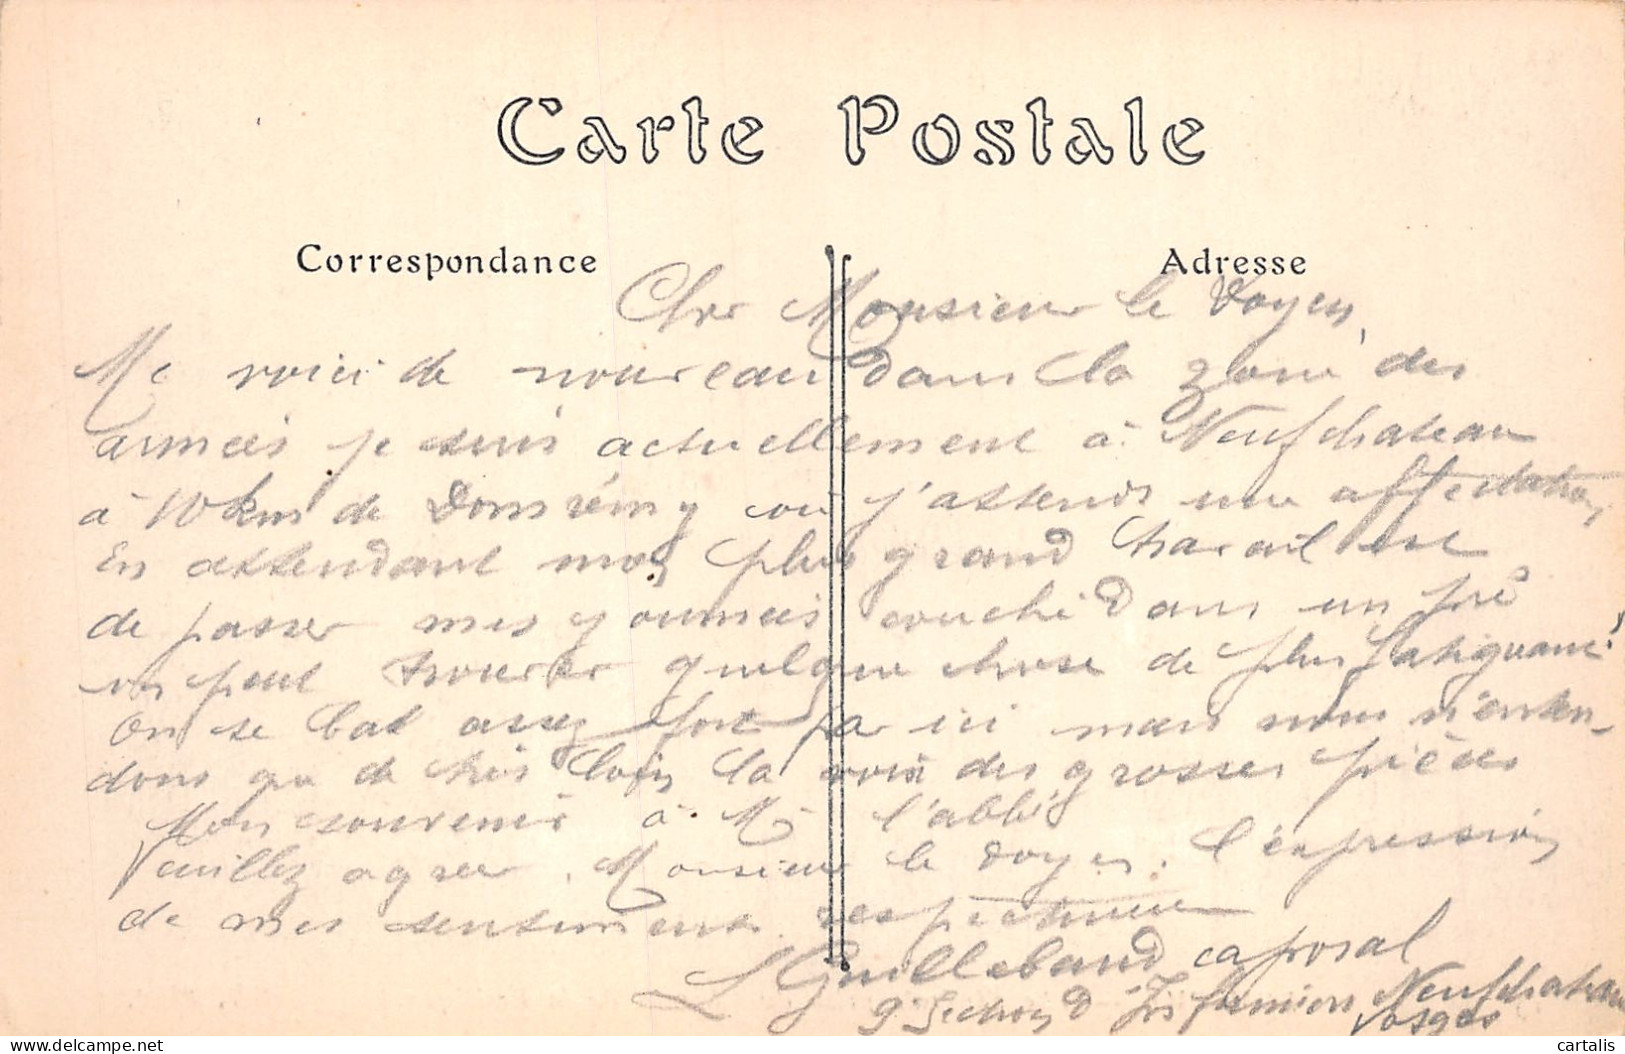 Carte Postale
Correspondance
Adresse
Cher Monsieur le Doyen,
Me voici de nouveau dans la zone des
armées je suis actuellement à Neufchateau
à 10 km de Domrémy où j'attends une affectation,
En attendant mon plus grand travail est
de passer mes journées couché dans un pré
on peut trouver quelque chose de plus fatiguant!
On se bat assez fort par ici mais nous n'enten-
dons que de très loin la voix des grosses pièces
Mon souvenir à Mr l'abbé
Veuillez agréer, Monsieur le doyen, l'expression
de mes sentiments respectueux
L Guillebaud caporal
9e Section d'Infirmiers Neufchateau
Vosges
cartalis
delcampe.net